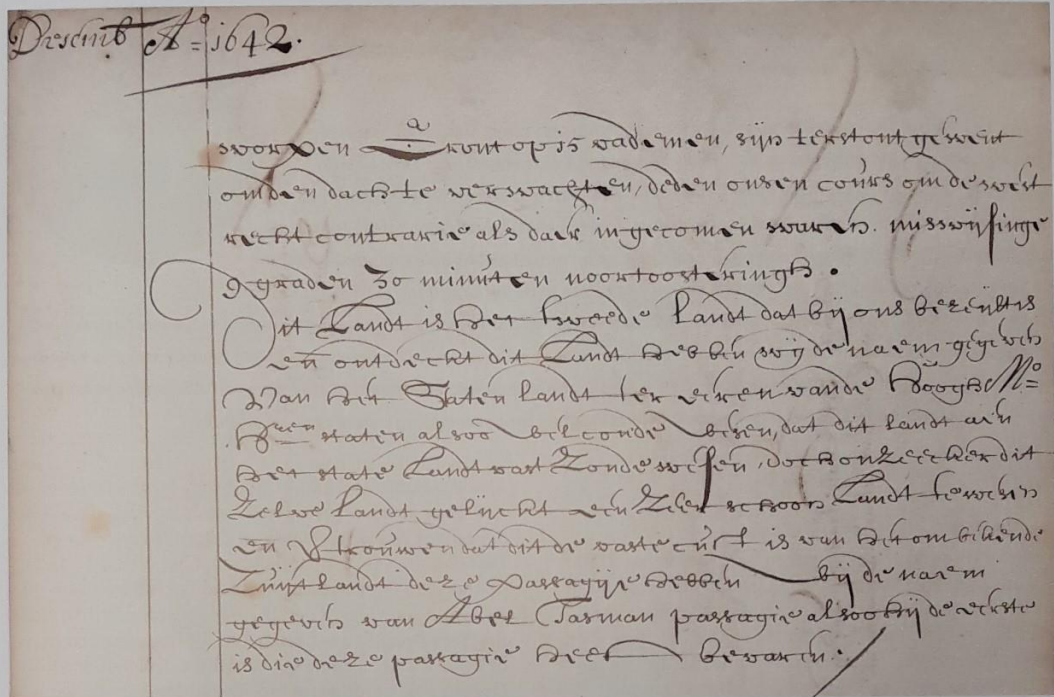 Desemb A° = 1642.
worpen gront op 15 vademen, sijn terstont gewent
om den dach te verwachten, deden onsen cours om de west
recht contrarie als daer in gecomen waren. miswijsinge
9 graden 30 minuten noortoosteringh.
Dit Landt is het tweede Landt dat bij ons bezeijlt is
en ontdeckt dit Landt hebben wij de naem gegeven
Van het Staten landt ter eeren vande Hoogh Mo =
Heeren staten alsoo wel conde wesen, dat dit landt aen
het state Landt vast Zonde wesen, doch onzeecker dit
Zelve landt gelijckt een Zeer schoon Landt te wesen
en vertrouwen dat dit de vaste cust is van het ombekende
Zuijtlandt deze Passagije hebben wij de naem
gegeven van Abel Tasman passagie alsoo hij de eerste
is die deze passagie heeft bevaren.